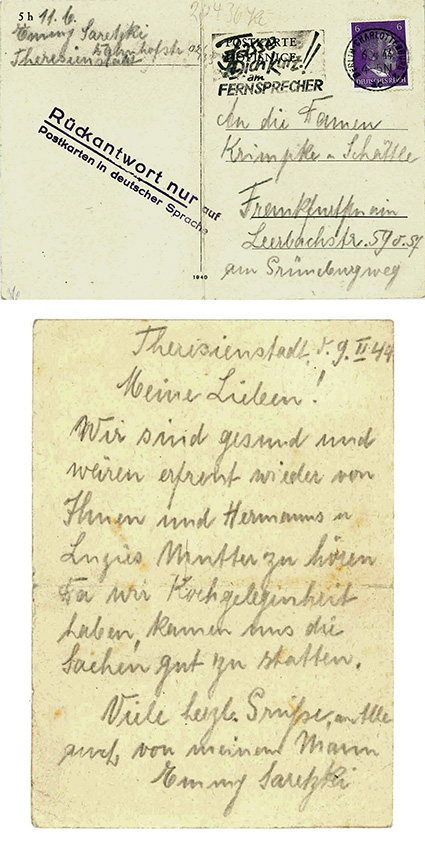 5 h 11.6.
Emmy Saretzki
Bahnhofstr
Theresienstadt
POSTKARTE
Fasse
Dich kurz!!
am
FERNSPRECHER
6
6
DEUTSCHES REICH
BERLIN-CHARLOTTENBURG
Rückantwort nur auf
Postkarten in deutscher Sprache
An die Damen
Krimpke u Schättle
Frankfurt Main
Leerbachstr. 59
am Grüneburgweg
1940
Theresienstadt, d. 9. II. 44
Meine Lieben!
Wir sind gesund und
wären erfreut wieder von
Ihnen und Hermanns u
Luzies Mutter zu hören
Da wir Kochgelegenheit
haben, kamen uns die
Sachen gut zu statten.
Viele herzl. Grüße, an Alle
auch von meinem Mann
Emmy Saretzki